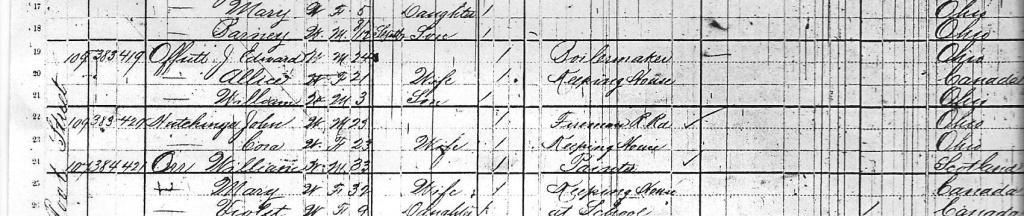 17 — Mary W F 5 Daughter / Ohio
18 — Barney W M 9/12 Son / Ohio
19 109 383 419 Offutt J Edward W M 24 / Boilermaker Ohio
20 — Allice W F 21 Wife / Keeping House Canada
21 — William W M 3 Son / Ohio
22 109 383 420 John W M 23 / Fireman R Rd Ohio
23 — Cora W F 23 Wife / Keeping House Ohio
24 107 384 421 Orr William W M 33 / Painter Scotland
25 — Mary W F 32 Wife / Keeping House Canada
26 — Violet W F 9 Daughter / at School / Canada
Street